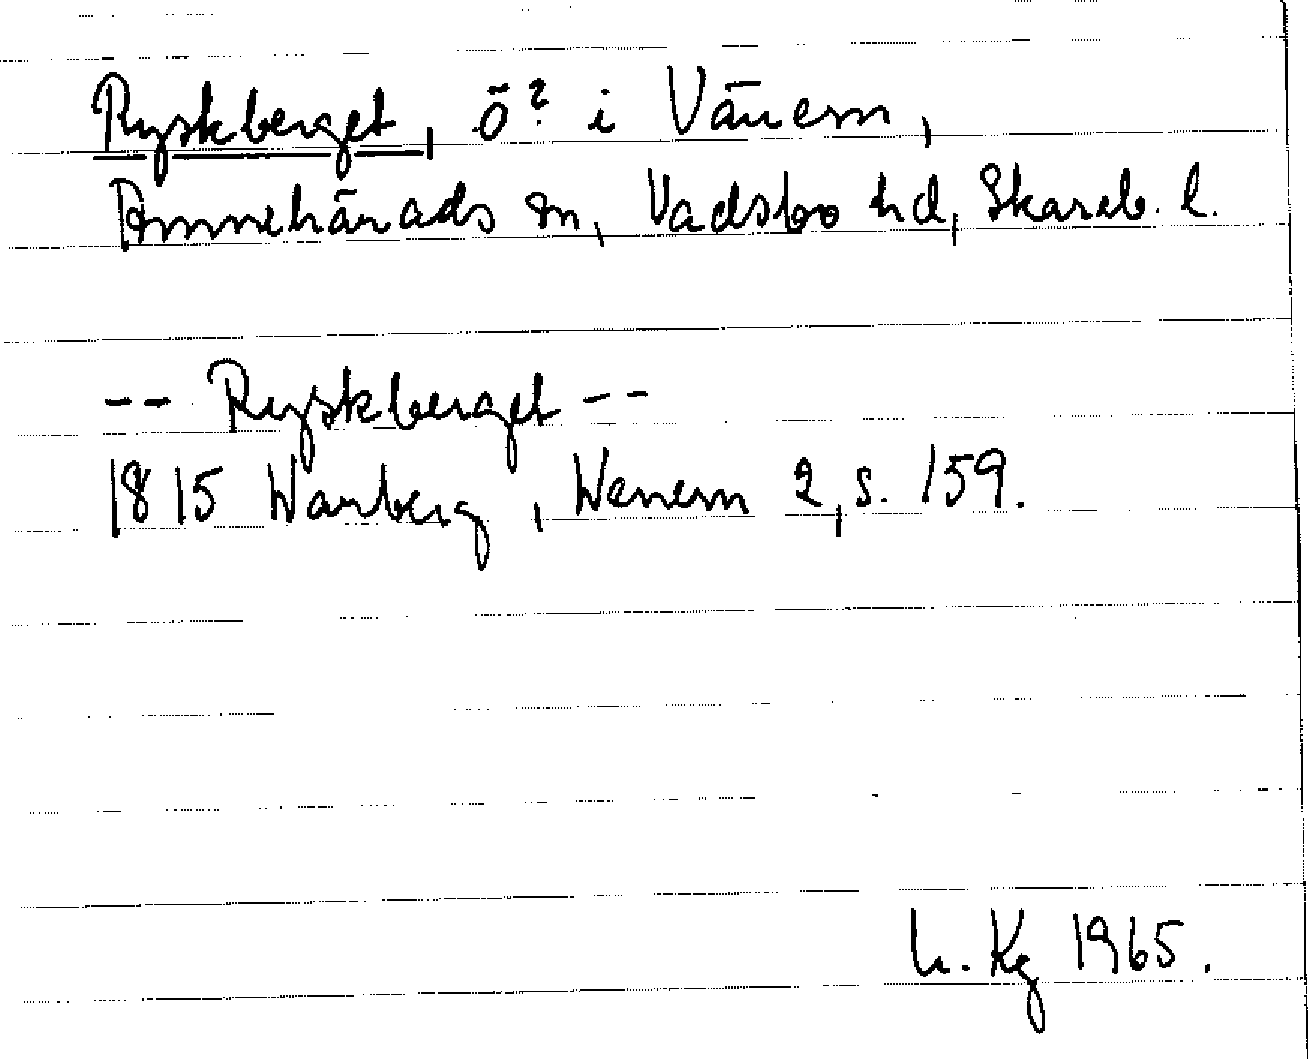 Ryskberget, ö? i Vänern,
Amnehärads sn, Vadsbo hd, Skarab. l.
-- Ryskberget --
1815 Warberg, Wenern 2, s. 159.
L. Kg 1965.